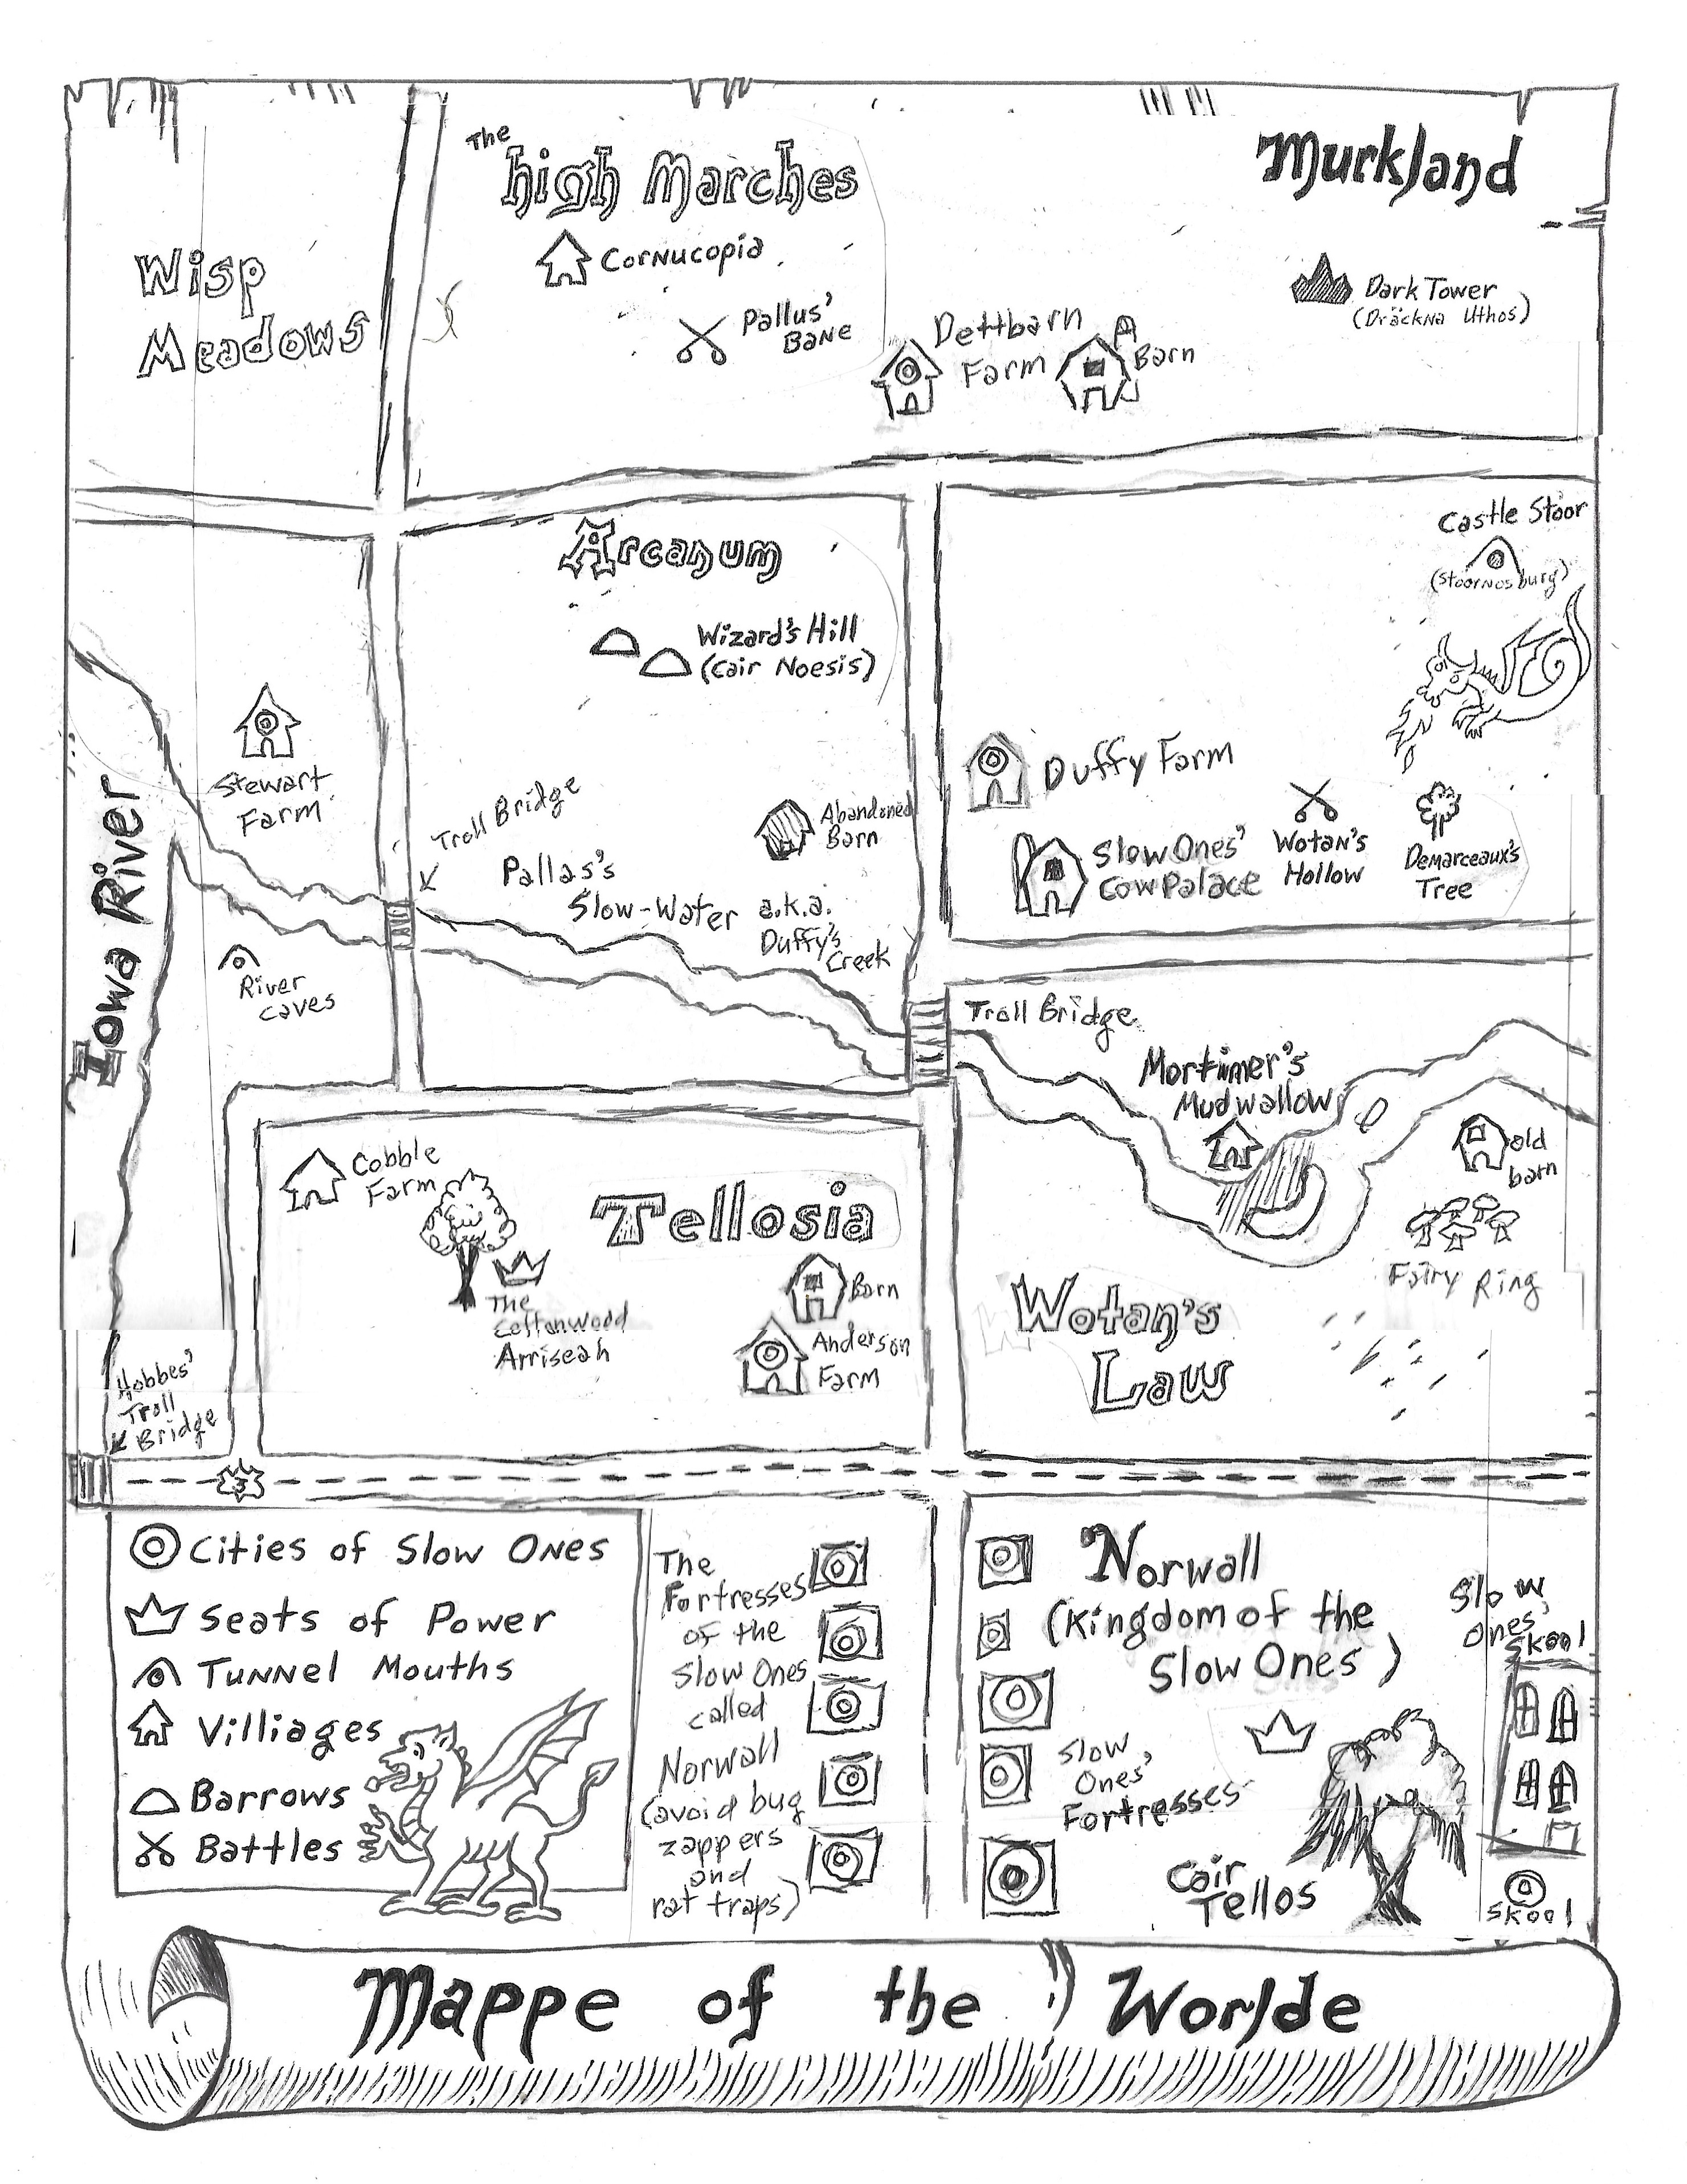 The
High Marches
Murkland
Wisp
Meadows
Cornucopia
Pallus'
Bane
Dark Tower
(Dräckna Uthos)
Dettbarn
Farm
Barn
Castle Stoor
(Stoornosburg)
Arcanum
Wizard's Hill
(Cair Noesis)
Stewart
Farm
Iowa River
Troll Bridge
Pallas's
Slow-Water
a.k.a.
Duffy's
Creek
Abandoned
Barn
Duffy Farm
Slow Ones'
Cow Palace
Wotan's
Hollow
Demarceaux's
Tree
River
caves
Troll Bridge
Mortimer's
Mudwallow
old
barn
Fairy Ring
Cobble
Farm
Tellosia
The
Cottonwood
Arriseah
Barn
Anderson
Farm
Wotan's
Law
Hobbes'
Troll
Bridge
Cities of Slow Ones
Seats of Power
Tunnel Mouths
Villiages
Barrows
Battles
The
Fortresses
of the
Slow Ones
called
Norwall
(avoid bug
zappers
and
rat traps)
Norwall
(Kingdom of the
Slow Ones)
Slow
Ones'
Fortresses
Cair
Tellos
Slow
Ones'
Skool
Skool
Mappe of the Worlde